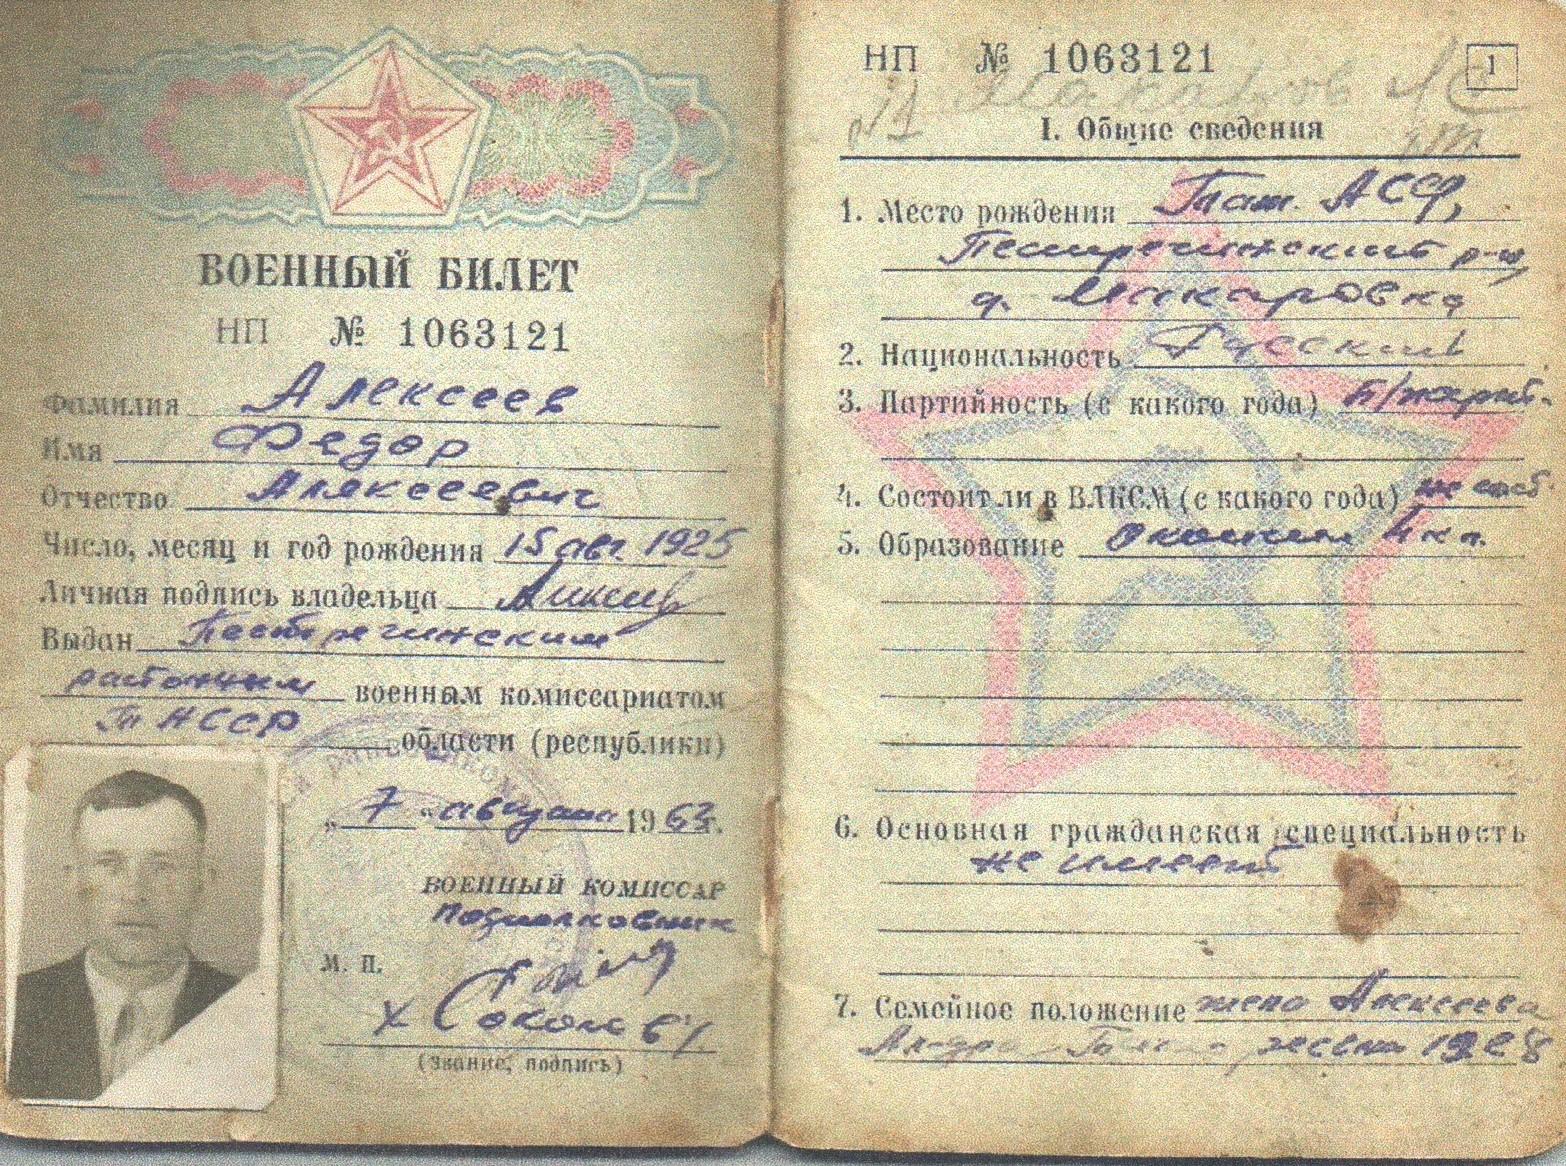 ВОЕННЫЙ БИЛЕТ
НП № 1063121
Фамилия Алексеев
Имя Федор
Отчество Алексеевич
Число, месяц и год рождения 15 авг 1925
Личная подпись владельца
Выдан Пестречинским
районным военным комиссариатом
ТАССР области (республики)
„ 7 “ августа 1963 г.
ВОЕННЫЙ КОМИССАР
Подполковник
М. П.
Соколов
(звание, подпись)
НП № 1063121
1
I. Общие сведения
1. Место рождения Тат. АССР,
Пестречинский р-н,
д. Макаровка
2. Национальность Русский
3. Партийность (с какого года) б/парт.
4. Состоит ли в ВЛКСМ (с какого года) не сост.
5. Образование окончил 4 кл.
6. Основная гражданская специальность
не имеет
7. Семейное положение жена Алексеева